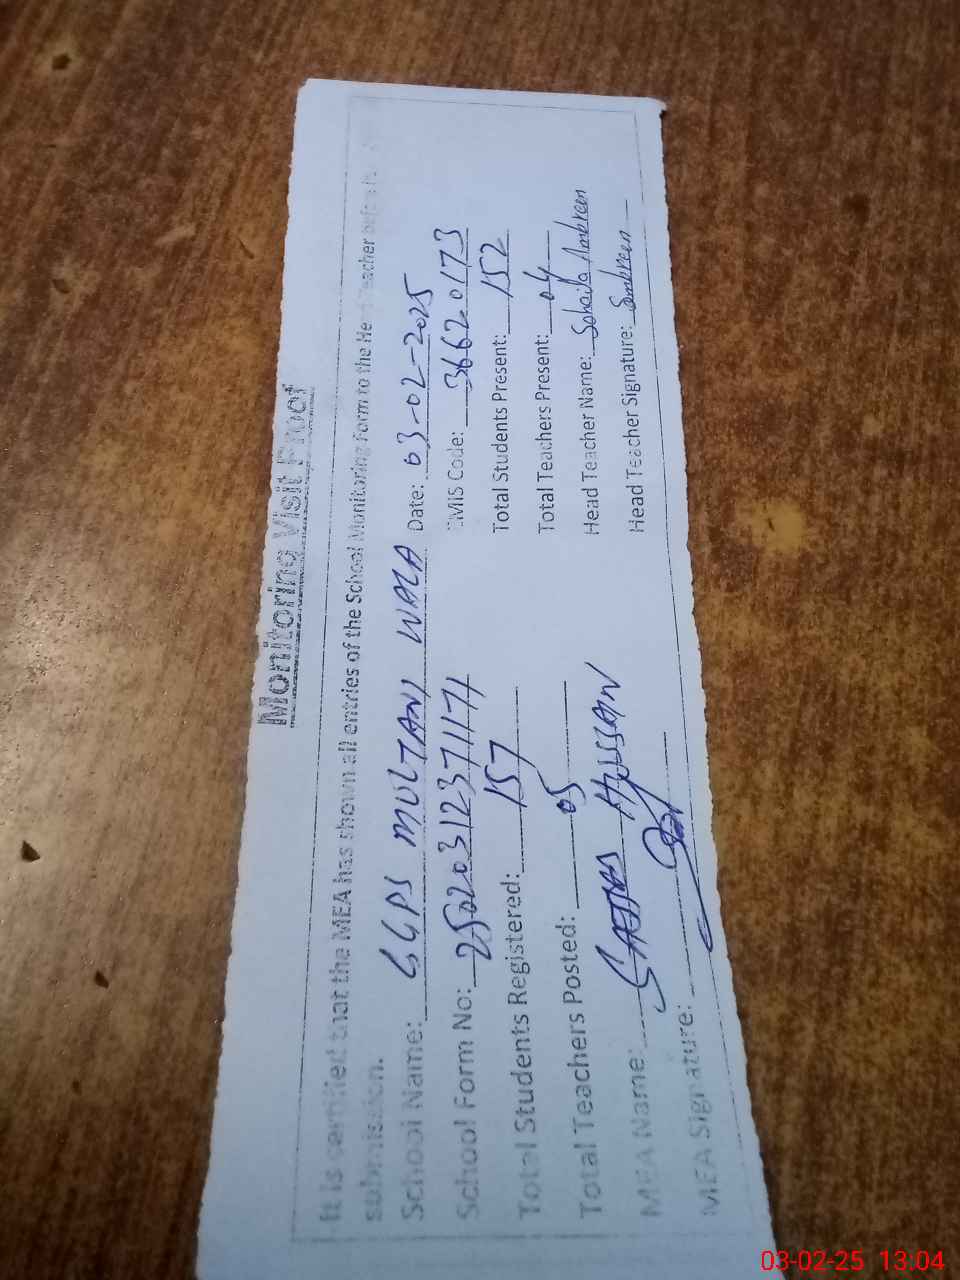 Monitoring Visit Proof
It is certified that the MEA has shown all entries of the School Monitoring Form to the Head Teacher before
submission.
School Name: GGPS MULTANI WALA Date: 03-02-2025
School Form No: EMIS Code: 36620173
Total Students Registered: 157 Total Students Present: 152
Total Teachers Posted: 05 Total Teachers Present: 04
MEA Name: HUSSAIN Head Teacher Name: Sohaila Ambreen
MEA Signature: Head Teacher Signature:
03-02-25 13:04